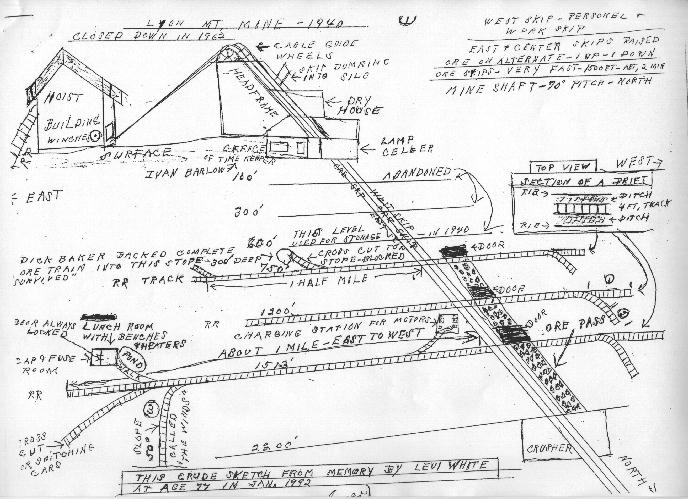 LYON MT. MINE - 1940
CLOSED DOWN IN 1962
WEST SKIP - PERSONEL +
WORK SKIP
EAST + CENTER SKIPS RAISED
ORE ON ALTERNATE - 1 UP - 1 DOWN
ORE SKIPS - VERY FAST - 1500 FT - 2 MIN
MINE SHAFT - 70° PITCH - NORTH
CABLE GUIDE
WHEELS
SKIP DUMPING
INTO SILO
HEADFRAME
DRY
HOUSE
HOIST
BUILDING
WINCHES
RR
SURFACE
OFFICE
OF TIME KEEPER
IVAN BARLOW
LAMP
CELLER
EAST
160'
ABANDONED
TOP VIEW
WEST
SECTION OF A DRIFT
RIB
DITCH
4 FT. TRACK
RIB
DITCH
300'
WEST SKIP
IN 1940
THIS LEVEL
USED FOR STORAGE
DICK BAKER BACKED COMPLETE
ORE TRAIN INTO THIS STOPE - 300' DEEP
SURVIVED"
750'
CROSS CUT TO
STOPE - BLOCKED
DOOR
RR TRACK
1 HALF MILE
DOOR
RR
1200'
CHARGING STATION FOR MOTORS
DOOR
ORE PASS
DOOR ALWAYS
LOCKED
LUNCH ROOM
WITH BENCHES
+ HEATERS
CAP & FUSE
ROOM
POND
WALL
ABOUT 1 MILE - EAST TO WEST
1512'
RR
CROSS
CUT
OR SWITCHING
CARS
SLOPE
50°
CALLED
"THE WINDS"
2200'
CRUSHER
NORTH
THIS CRUDE SKETCH FROM MEMORY BY LEVI WHITE
AT AGE 77 IN JAN. 1992